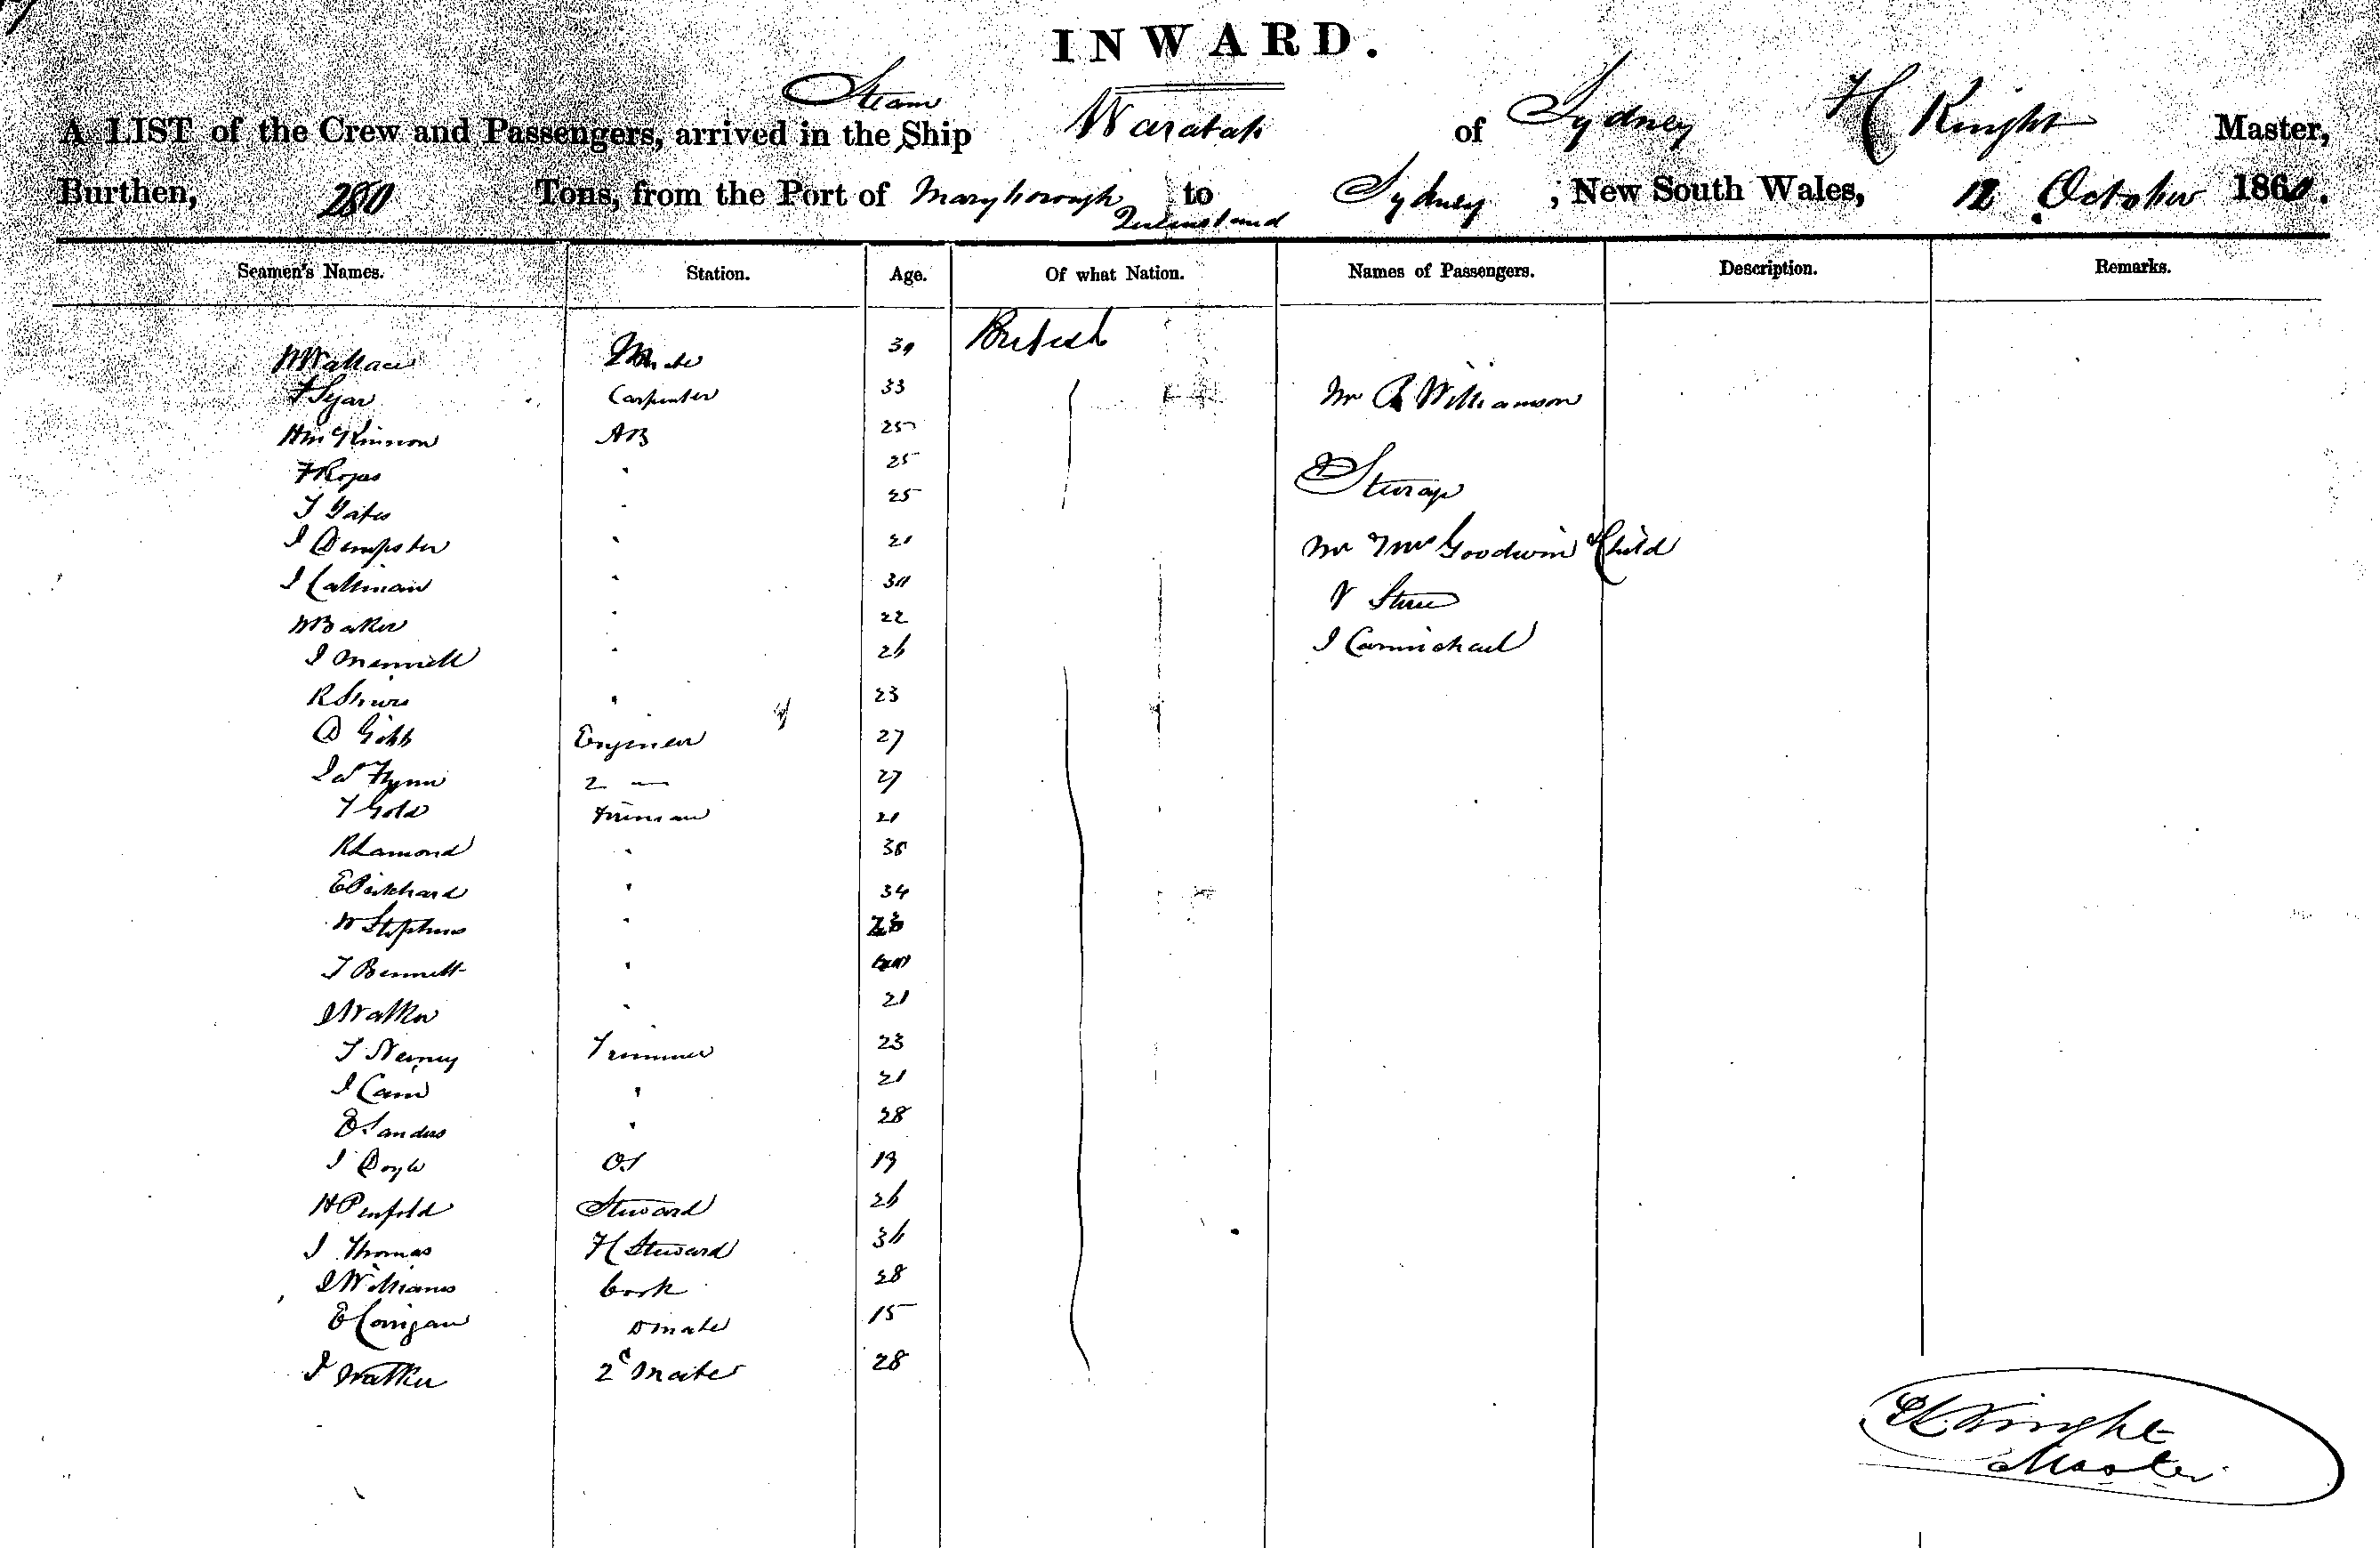 INWARD.
A LIST of the Crew and Passengers, arrived in the Steam Ship Waratah of Sydney H Knight Master,
Burthen, 280 Tons, from the Port of Maryborough Queensland to Sydney, New South Wales, 12 October 1860.
Seamen's Names. Station. Age. Of what Nation. Names of Passengers. Description. Remarks.
W Wallace Mate 30 British
Carpenter 33 Mr Williamson
H McKinnon AB 25
25
T Yates " 25
J Dempster " 21 Mr & Mrs Goodwin & Child
J Callinan " 30
W Baker " 22
J " 26 J Carmichael
R " 23
D Gibb Engineer 27
Flynn 2 — 27
T Gold Fireman 21
R Lamond "
E Pritchard " 34
W Stephens "
T Bennett "
J Walker " 21
T Nerney Trimmer 23
J Cain " 21
E Sanders " 28
J Doyle OS 19
H Penfold Steward 26
J Thomas H Steward 36
J Williams Cook 28
E Corrigan 15
J Walker 2d Mate 28
H Knight
Master